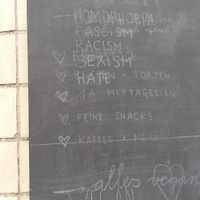 HOMOPHOBIA
FASCISM
RACISM
SEXISM
HATE + TORTEN
1A MITTAGESSEN
FEINE SNACKS
KAFFEE + MEHR
alles vegan